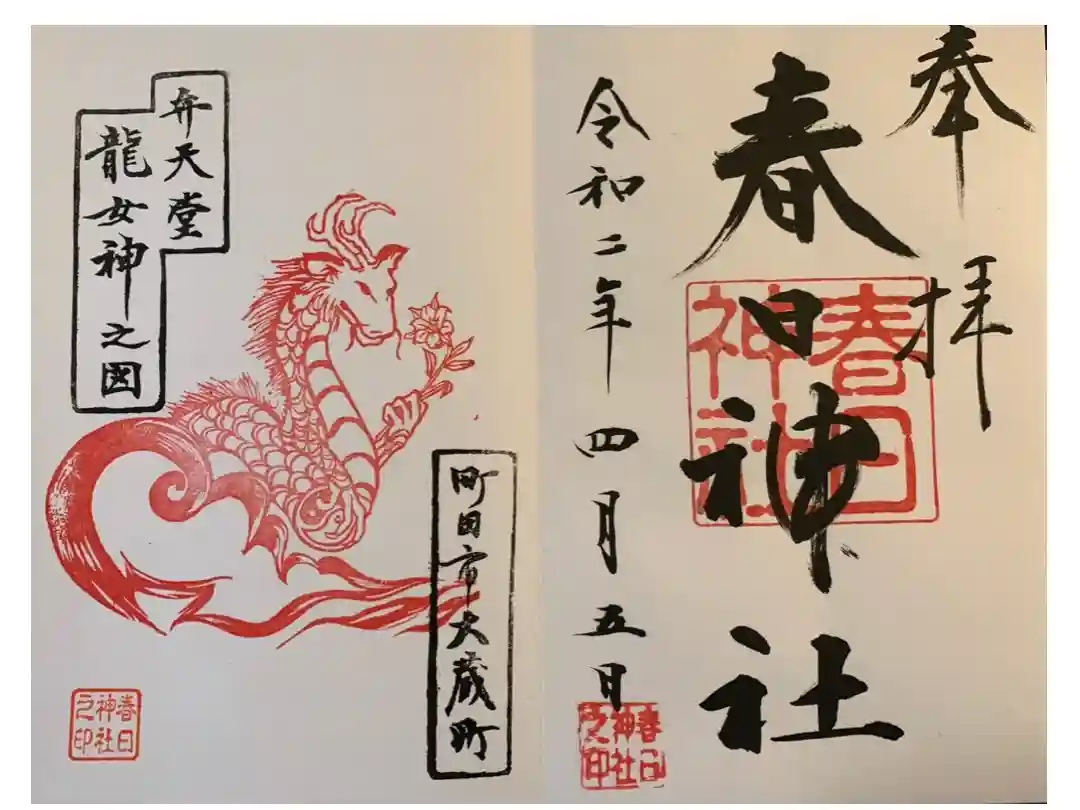 奉拝
春日神社
春日神社
令和二年四月五日
春日神社之印
弁天堂
龍女神之図
町田市大蔵町
春日神社之印